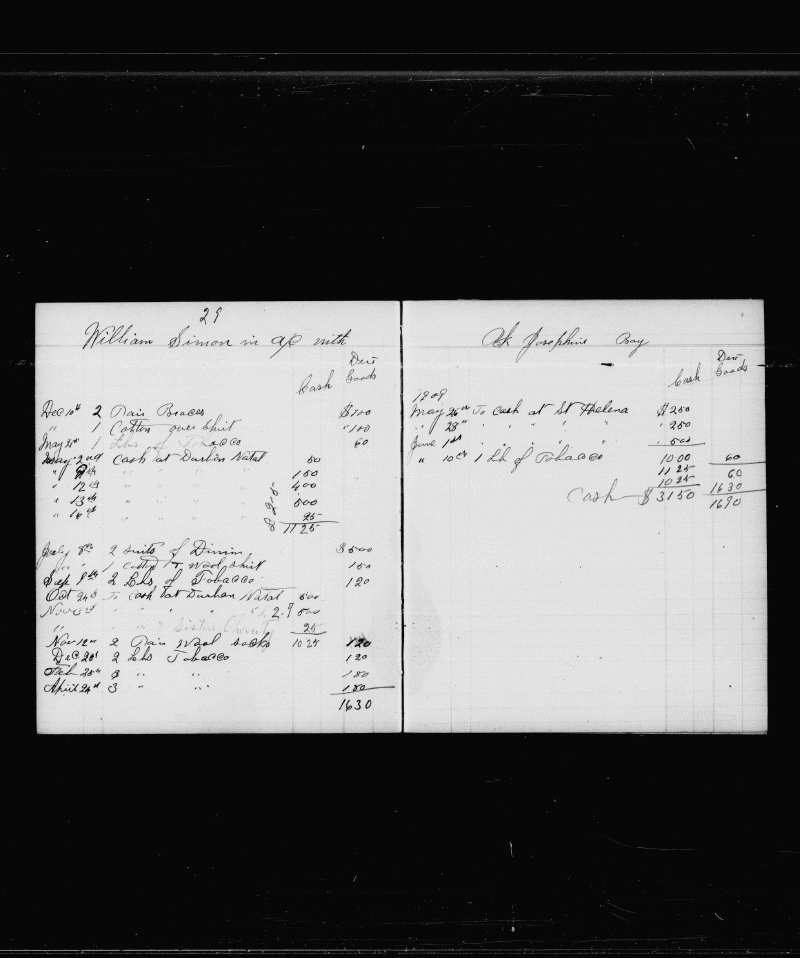 29
William Simon in a/c with
Cash Goods
Dec 10th 2 Pair Braces $200
" 1 Cotton over Shirt " 100
May 21st 1 Lbs of Tobacco 60
May 2nd Cash at Durban Natal 50
" 9th " " " " 150
" 12th " " " " 400
" 13th " " " " 500
" 16th " " " " 25
1125
July 8th 2 Suits of Dinim $500
" " 1 Cotton & Wool Shirt 150
Sep 9th 2 Lbs of Tobacco 120
Oct 24th To Cash at Durban Natal 500
Nov 3rd " " " " 2-9 500
" " " Sister Charity 25
Nov 12th 2 Pair Wool Socks 1025 120
Dec 20th 2 Lbs Tobacco 120
Feb 28th 3 " " 180
April 24th 3 " " 180
1630
Bk Josephine Bay
Cash Goods
1909
May 26th To Cash at St Helena $250
" 28th " " " " " 250
June 1st " " " " " 500
" 10th 1 Lb of Tobacco 1000 60
1125 60
1025 1630
Cash $3150 1690